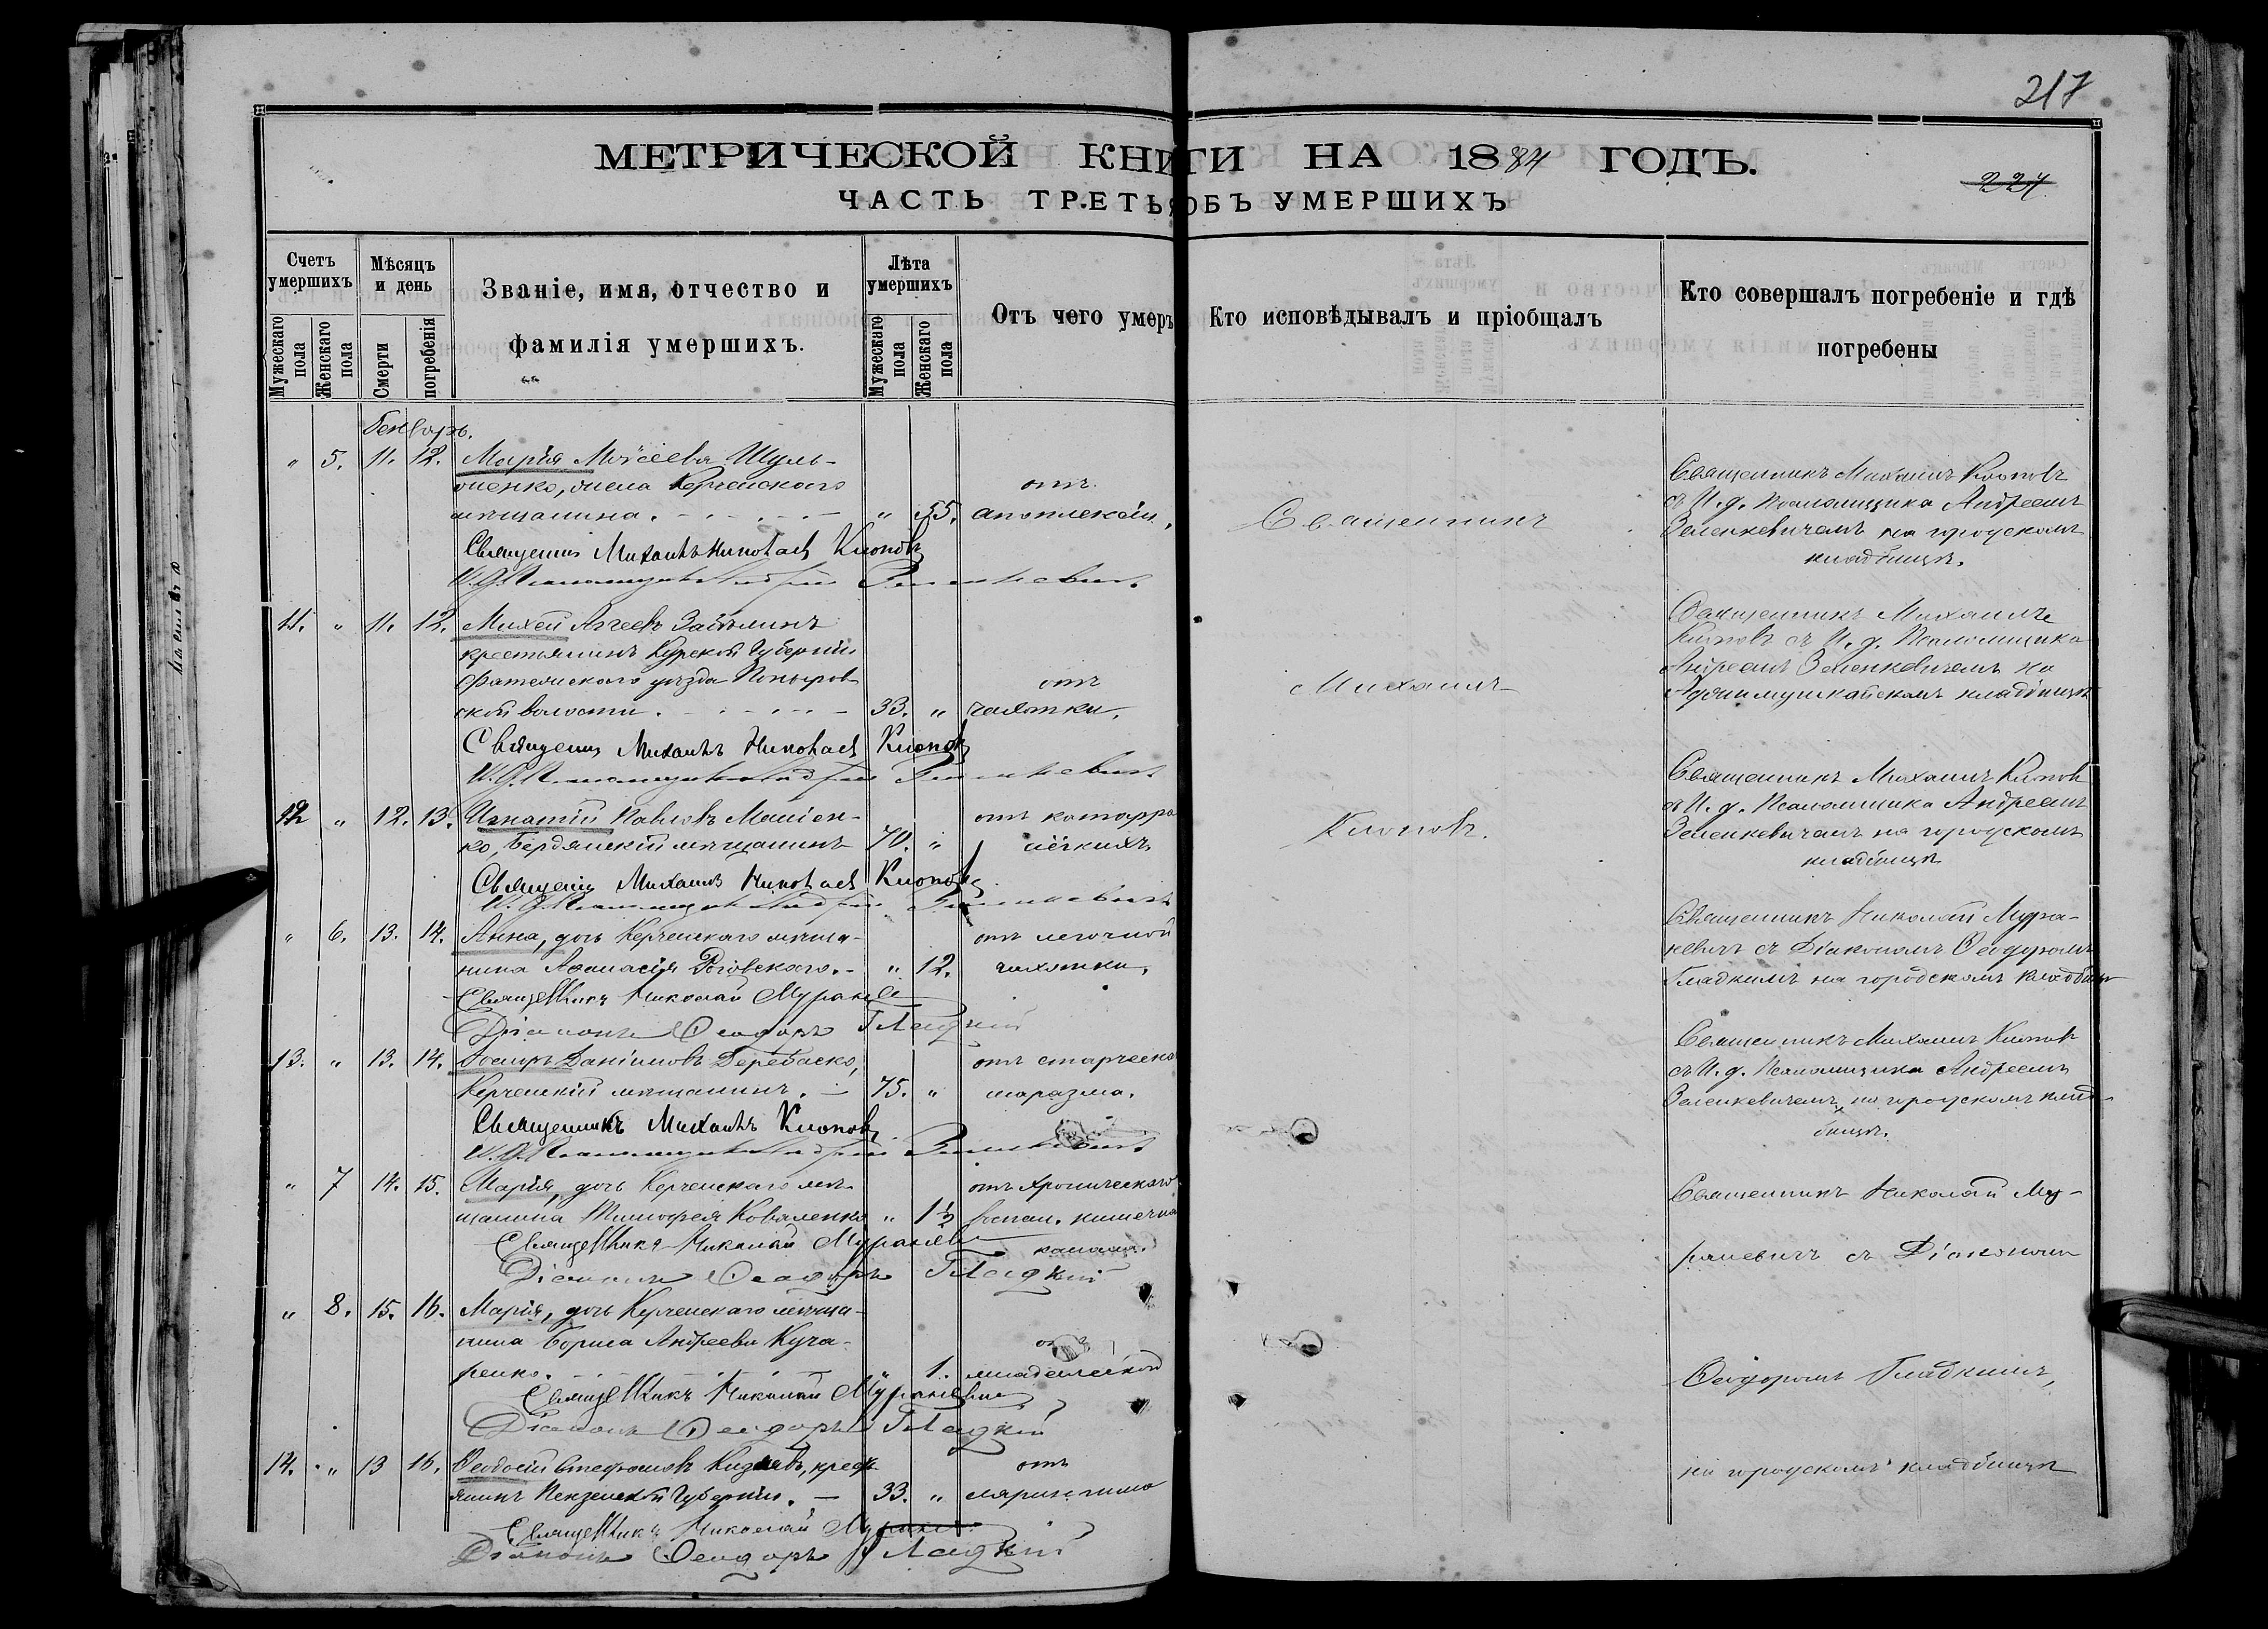 217
МЕТРИЧЕСКОЙ КНИГИ НА 1884 ГОДЪ.
227
ЧАСТЬ ТРЕТЬЯ ОБЪ УМЕРШИХЪ
Счетъ умершихъ
Мужескаго пола
Женскаго пола
Мѣсяцъ и день
Смерти
погребенія
Званіе, имя, отчество и фамилія умершихъ.
Лѣта умершихъ
Мужескаго пола
Женскаго пола
Отъ чего умеръ
Кто исповѣдывалъ и пріобщалъ
Кто совершалъ погребеніе и гдѣ погребены
" 5. 11. 12. Марія Моѵсеева Шуль-
менко, жена Керченскаго отъ
мѣщанина. " 55. апоплексіи,
Священникъ Михаилъ Николаевъ Клоповъ
И. д. Псаломщика Андрей Зеленкевичъ
Священникъ
Священникъ Михаилъ Клоповъ
съ И. д. Псаломщика Андреемъ
Зеленкевичемъ на городскомъ
кладбищѣ.
11. " 11. 12. Михей Аггеевъ
крестьянинъ Курской Губерніи
Фатежскаго уѣзда Поныров- отъ
ской волости. 33. " чахотки.
Священникъ Михаилъ Николаевъ Клоповъ
И. д. Псаломщика Андрей Зеленкевичъ
Михаилъ
Священникъ Михаилъ
Клоповъ съ И. д. Псаломщика
Андреемъ Зеленкевичемъ на
Аджимушкайскомъ кладбищѣ
12 " 12. 13. Игнатій Павловъ
ко, Бердянскій мѣщанинъ 70. " отъ катарра
лёгкихъ
Священникъ Михаилъ Николаевъ Клоповъ
И. д. Псаломщика Андрей Зеленкевичъ
Клоповъ.
Священникъ Михаилъ Клоповъ
съ И. д. Псаломщика Андреемъ
Зеленкевичемъ на городскомъ
кладбищѣ
" 6. 13. 14. Анна, дочь Керченскаго мѣща- отъ легочной
нина Аѳанасія Роговскаго. " 12. чахотки,
Священникъ Николай Мураневичъ
Діаконъ Ѳеодоръ Гладкій
Священникъ Николай Мура-
невичъ съ Діакономъ Ѳеодоромъ
Гладкимъ на городскомъ кладбищѣ
13. " 13. 14. Іосифъ Даніиловъ Деребаско, отъ старческа
Керченскій мѣщанинъ. 75. " маразма.
Священникъ Михаилъ Клоповъ
И. д. Псаломщика Андрей Зеленкевичъ
Священникъ Михаилъ Клоповъ
съ И. д. Псаломщика Андреемъ
Зеленкевичемъ, на городскомъ клад-
бищѣ.
" 7 14. 15. Марія, дочь Керченскаго мѣ- отъ хроническаго
щанина Тимофея Коваленко " 1½ воспал. кишечна
канала.
Священникъ Николай Мураневичъ
Діаконъ Ѳеодоръ Гладкій
Священникъ Николай Му-
раневичъ съ Діакономъ
" 8. 15. 16. Марія, дочь Керченскаго мѣща-
нина Бориса Андреева Куча- отъ
ренко. " 1. младенческой
Священникъ Николай Мураневичъ
Діаконъ Ѳеодоръ Гладкій
Ѳеодоромъ Гладкимъ,
14. " 13 16. Ѳеодосій Стефановъ крестъ- отъ
янинъ Пензенской Губерніи. 33. "
Священникъ Николай Мураневичъ
Діаконъ Ѳеодоръ Гладкій
на городскомъ кладбищѣ